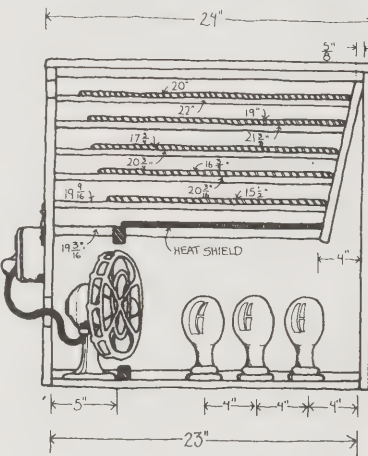 24"
5/8"
20"
22" 19"
17 3/4" 21 3/8"
20 3/4" 16 3/4"
19 9/16" 20 3/16" 15 1/2"
19 3/16" HEAT SHIELD
4"
5" 4" 4" 4"
23"